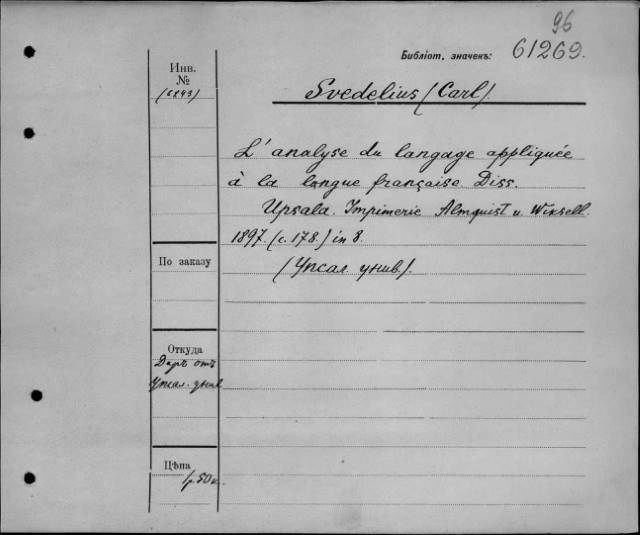 96
Библіот. значекъ: 61269.
Инв.
№
(6243)
Svedelius (Carl).
L'analyse du langage appliquée
à la langue française. Diss.
Upsala. Imprimerie Almquist u. Wiksell.
1897. (c. 178.) in 8.
(Упсал. унив.).
По заказу
Откуда
Даръ отъ
Упсал. унив.
Цѣна
1р. 50к.